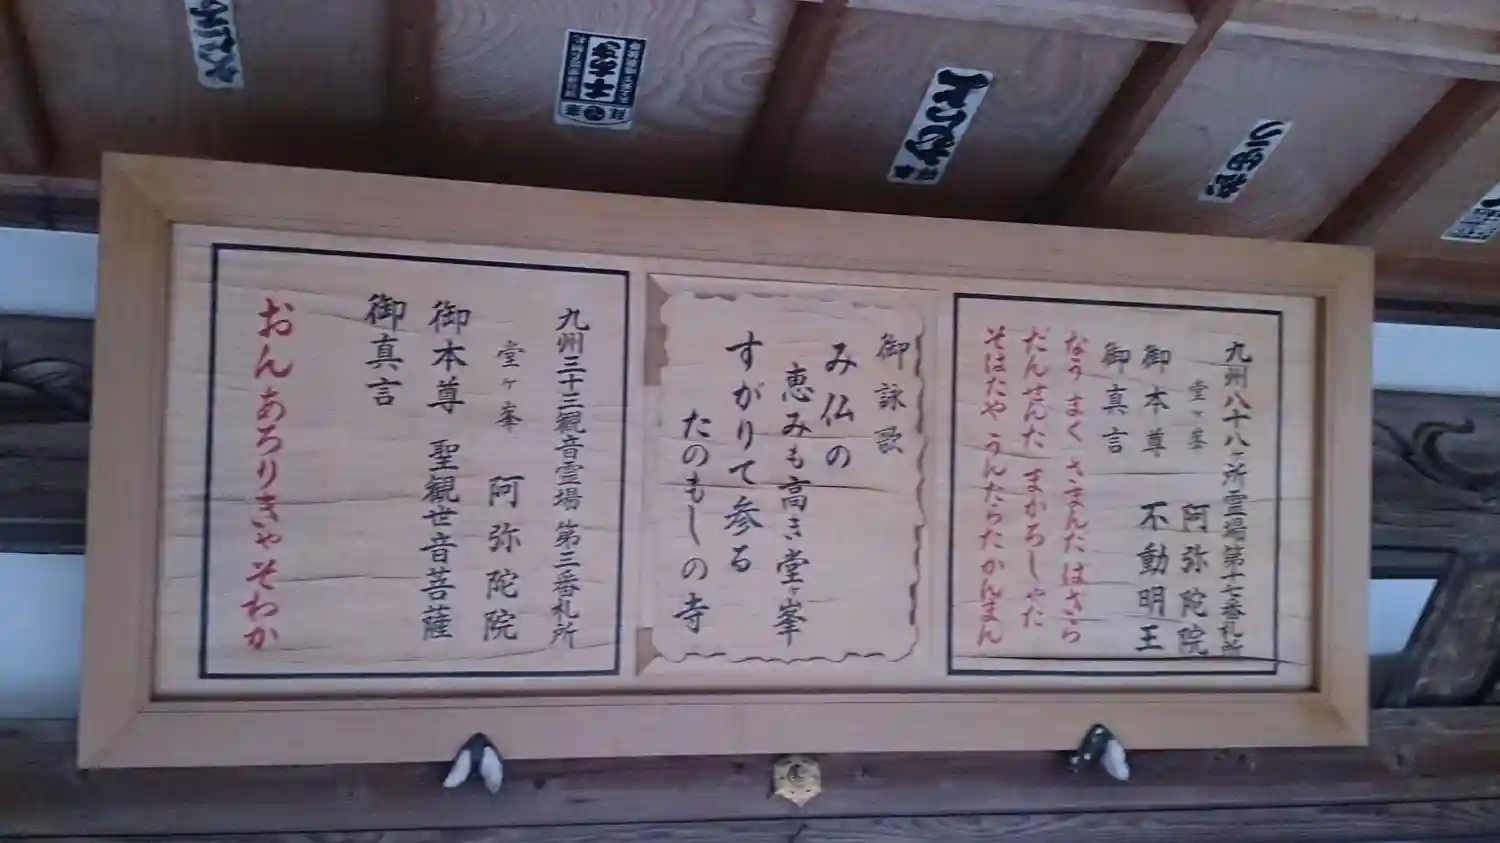 九州八十八ヶ所霊場第十七番札所
堂ヶ峯 阿弥陀院
御本尊 不動明王
御真言
なうまく さまんだ ばさら
だんせんだ まかろしゃだ
そはたや うんたらたかんまん
御詠歌
み仏の
恵みも高き堂ヶ峯
すがりて参る
たのもしの寺
九州三十三観音霊場 第三番札所
堂ヶ峯 阿弥陀院
御本尊 聖観世音菩薩
御真言
おんあろりきゃそわか